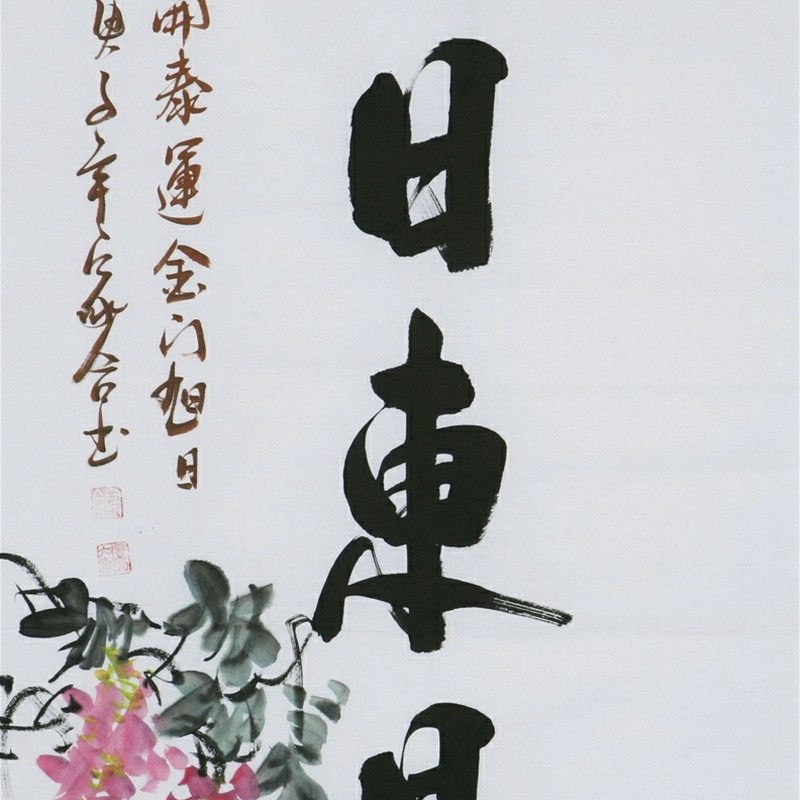 日東
開泰運金门旭日
庚子年合书